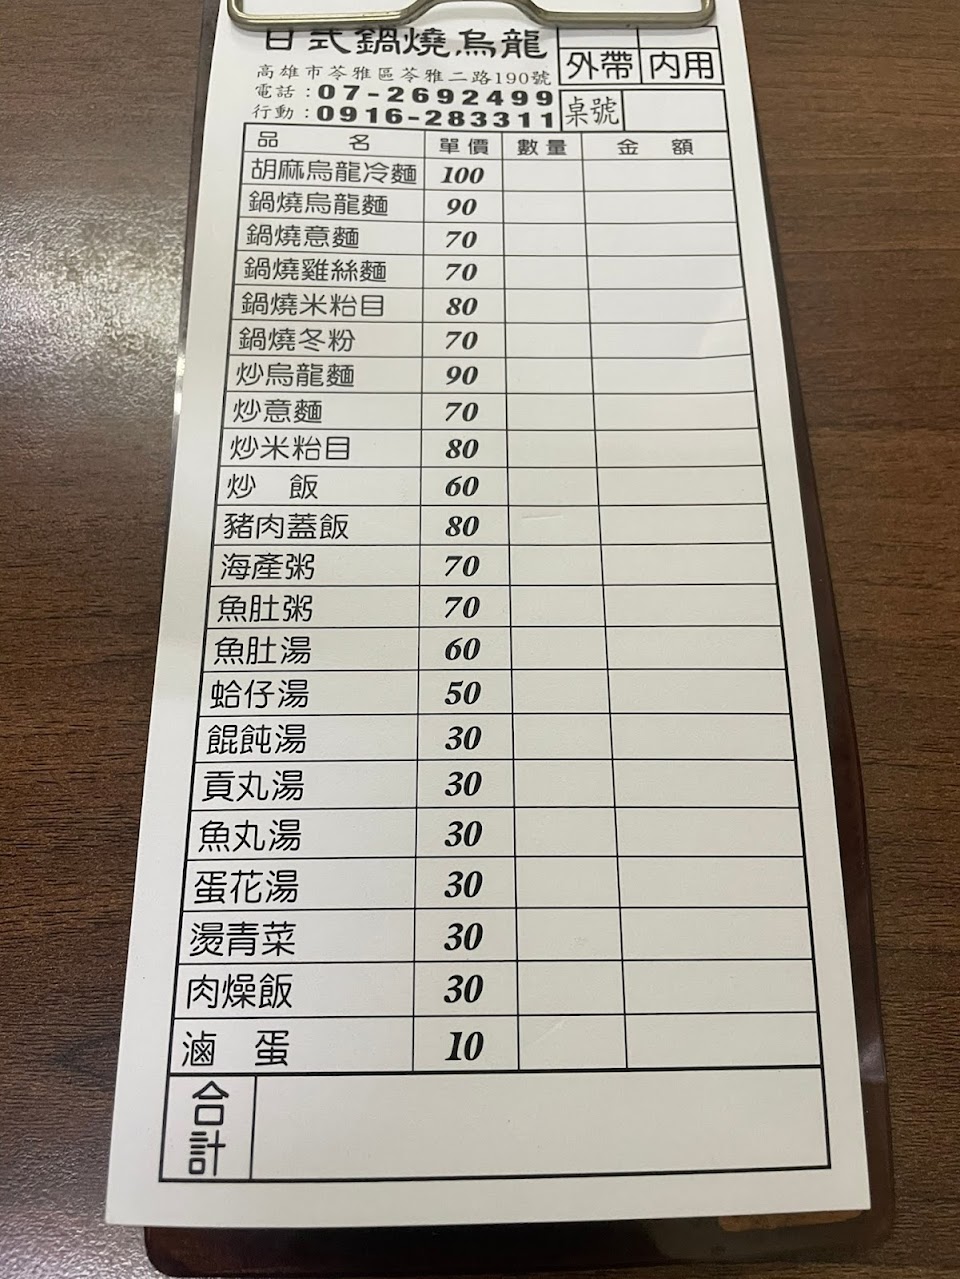 日式鍋燒烏龍
高雄市苓雅區苓雅二路190號
電話：07-2692499
行動：0916-283311
外帶 內用
桌號
品名 單價 數量 金額
胡麻烏龍冷麵 100
鍋燒烏龍麵 90
鍋燒意麵 70
鍋燒雞絲麵 70
鍋燒米粘目 80
鍋燒冬粉 70
炒烏龍麵 90
炒意麵 70
炒米粘目 80
炒飯 60
豬肉蓋飯 80
海產粥 70
魚肚粥 70
魚肚湯 60
蛤仔湯 50
餛飩湯 30
貢丸湯 30
魚丸湯 30
蛋花湯 30
燙青菜 30
肉燥飯 30
滷蛋 10
合計